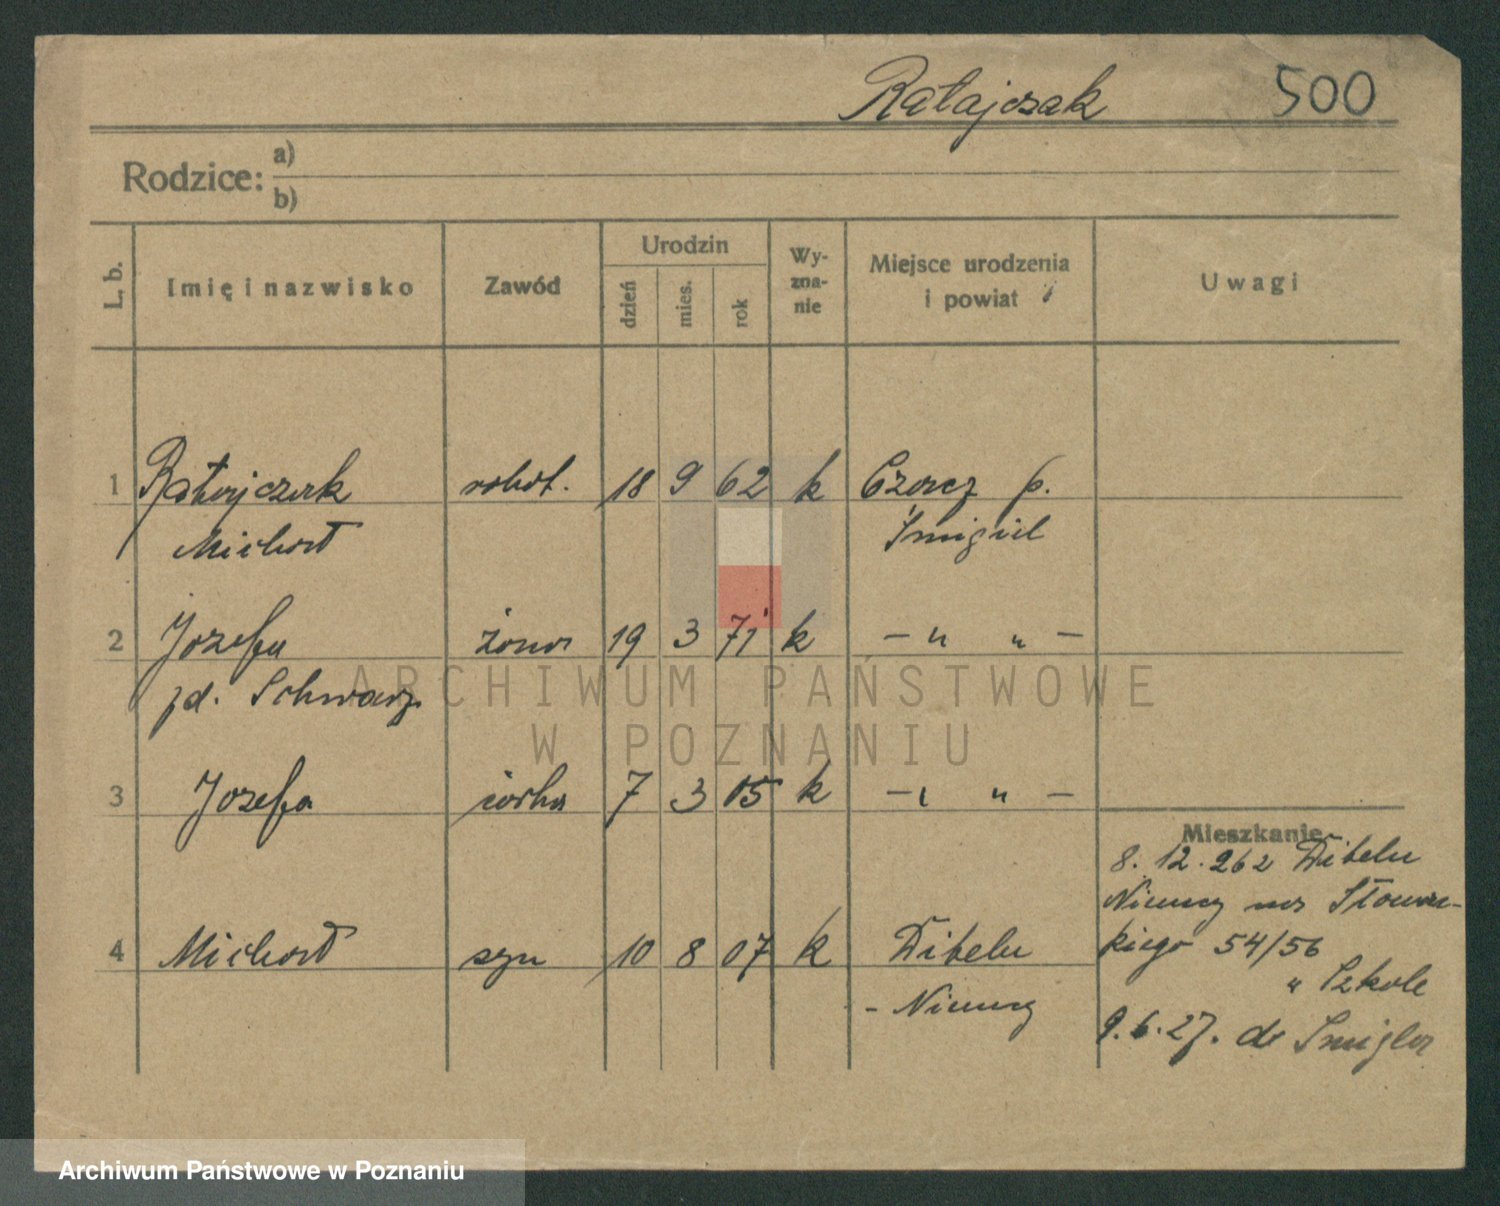 Ratajczak 500
Rodzice: a)
b)
L. b. Imię i nazwisko Zawód Urodzin dzień mies. rok Wy-zna-nie Miejsce urodzenia i powiat Uwagi
1 Ratajczak robot. 18 9 62 k p.
Michał Śmigiel
2 Józefa żona 19 3 71 k – " " –
Schwarz
3 Józefa córka 7 3 05 k – " " –
Mieszkanie
8. 12. Dibeln
Niemcy na Słowac-
4 Michał syn 10 8 07 k Dibeln
kiego 54/56
" Szkole
- Niemcy
9. 6. 27. do Śmigla
ARCHIWUM PAŃSTWOWE
W POZNANIU
Archiwum Państwowe w Poznaniu